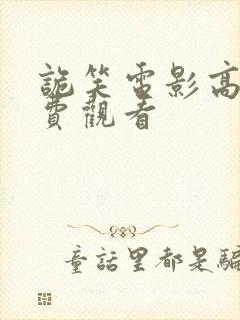 詭笑電影高
費觀看
童話里都是騙